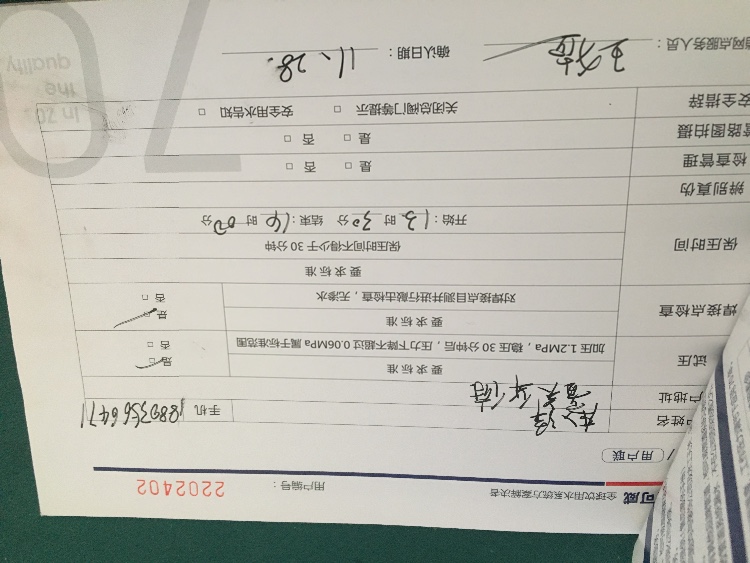 可威 全球饮用水系统方案解决者 用户编号： 2202402
/ 用户联
户姓名 手机 18803566471
户地址
试压 要求标准 是
加压1.2MPa，稳压30分钟后，压力下降不超过0.06MPa属于标准范围 否
焊接点检查 要求标准 是
对焊接点目测并进行敲击检查，无渗水 否
保压时间 要求标准
保压时间不得少于30分钟
开始：13时30分 结束：14时00分
辨别真伪
检查管理 是 否
管路图拍摄 是 否
安全措辞 关闭总阀门等提示 安全用水告知
网点服务人员： 确认日期： 11、28.
in 20
the
quality